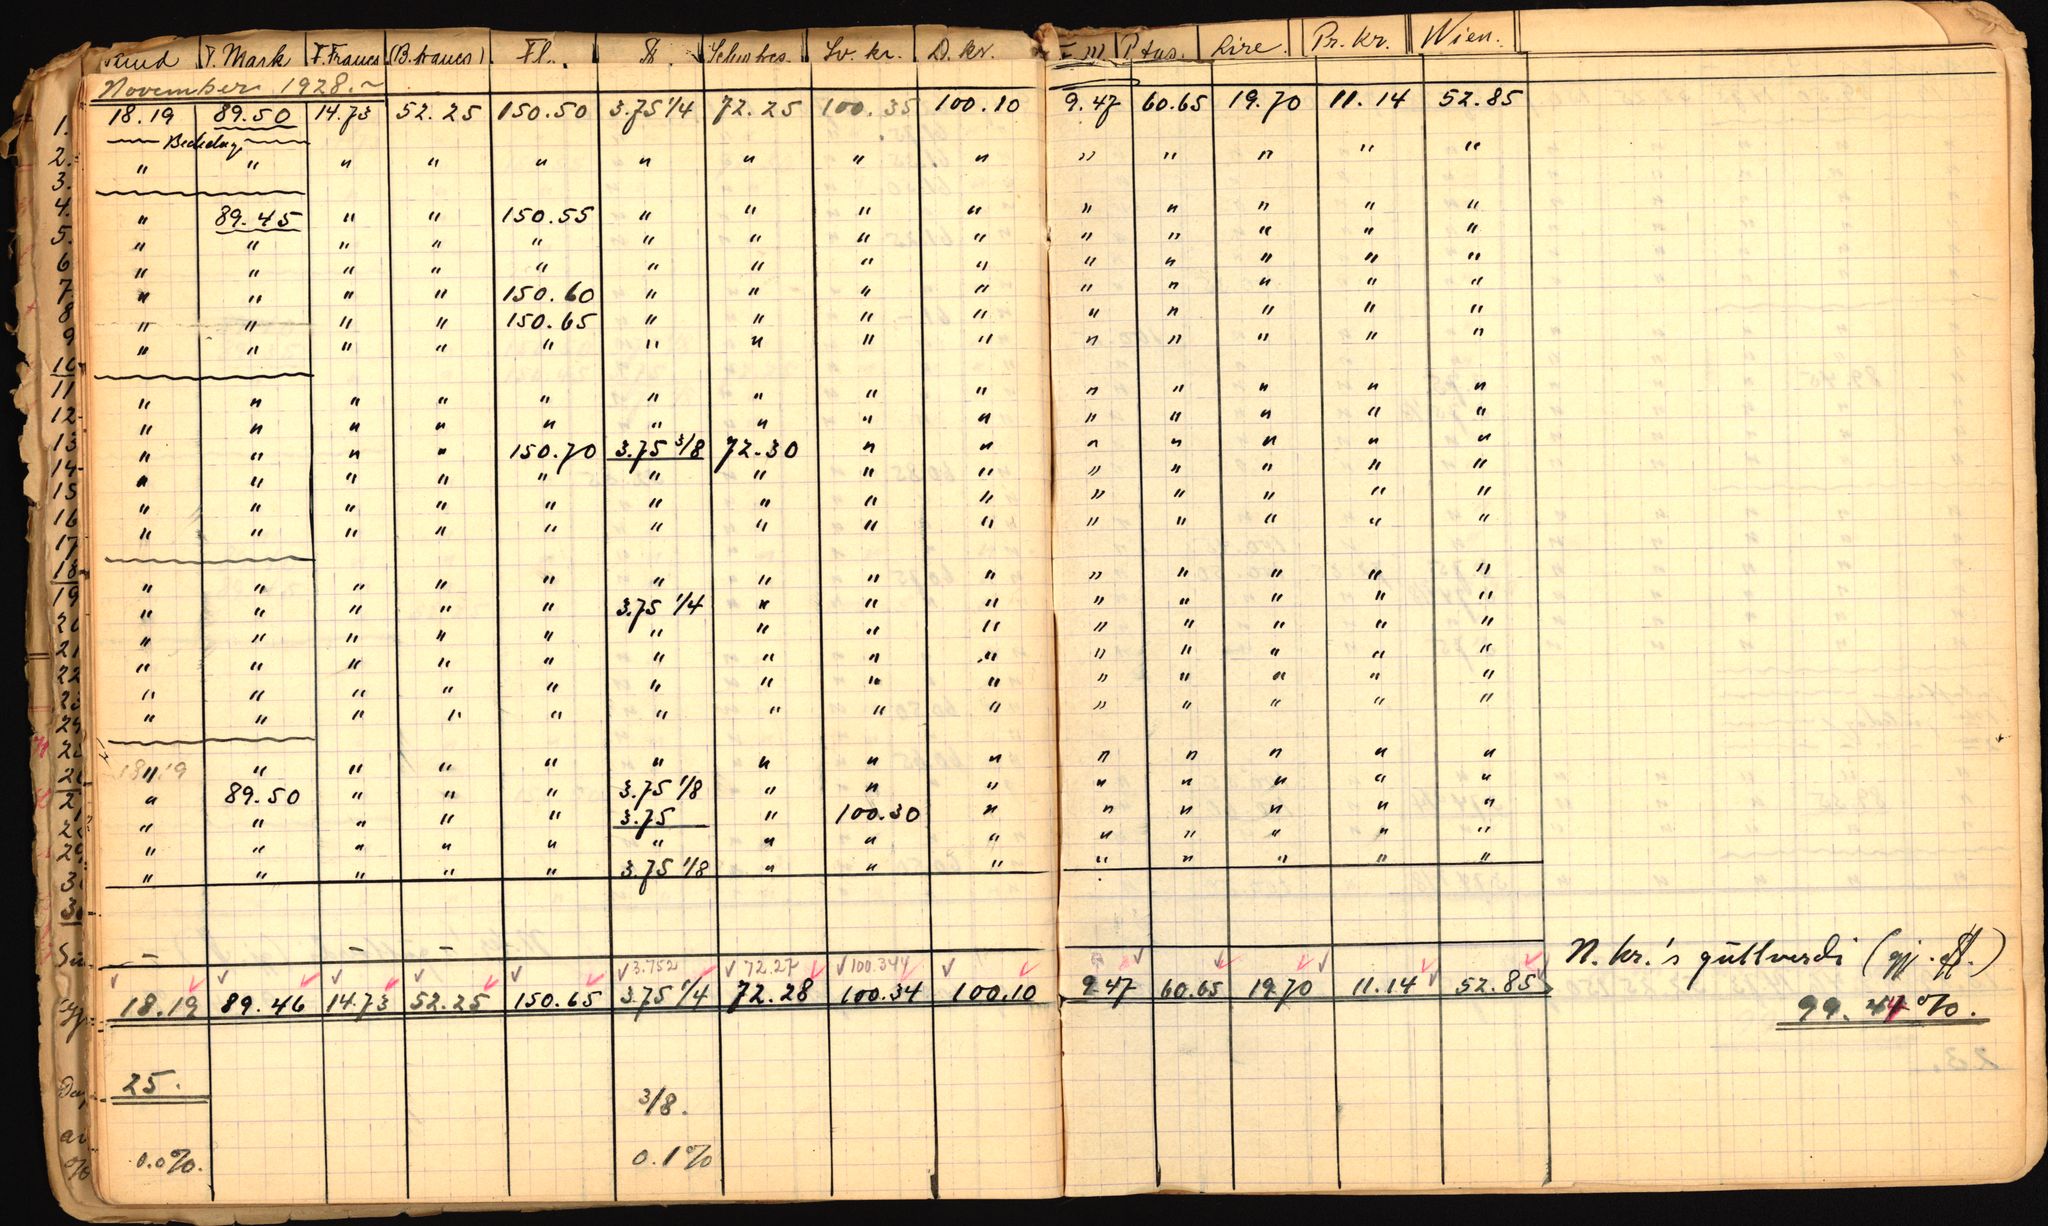 T. Mark F. Francs (B. francs) Fl. $ Sv. kr. D. kr. F. m Lire. Pr. Kr. Wien.
November 1928.
1. 18.19 89.50 14.73 52.25 150.50 3.75 1/4 72.25 100.35 100.10 9.47 60.65 19.70 11.14 52.85
Bededag
2. " " " " " " " " " " " " " "
3.
4. " 89.45 " " 150.55 " " " " " " " " "
5. " " " " " " " " " " " " " "
6 " " " " " " " " " " " " " "
7. " " " " 150.60 " " " " " " " " "
8 " " " " 150.65 " " " " " " " " "
9 " " " " " " " " " " " " " "
10
11 " " " " " " " " " " " " " "
12 " " " " " " " " " " " " " "
13 " " " " 150.70 3.75 3/8 72.30 " " " " " " "
14 " " " " " " " " " " " " " "
15 " " " " " " " " " " " " " "
16 " " " " " " " " " " " " " "
17
18 " " " " " " " " " " " " " "
19 " " " " " 3.75 1/4 " " " " " " " "
20 " " " " " " " " " " " " " "
21 " " " " " " " " " " " " " "
22 " " " " " " " " " " " " " "
23 " " " " " " " " " " " " " "
24
25 18.19 " " " " " " " " " " " " "
" 89.50 " " " 3.75 1/8 " " " " " " " "
" " " " " 3.75 " 100.30 " " " " " "
" " " " " " " " " " " " " "
" " " " " 3.75 1/8 " " " " " " " "
3.752 72.27 100.344
18.19 89.46 14.73 52.25 150.65 3.75 1/4 72.28 100.34 100.10 9.47 60.65 19.70 11.14 52.85
N. kr.'s gullverdi (gj. $.)
99.44 %.
25.
3/8.
% 0.0%. 0.1%